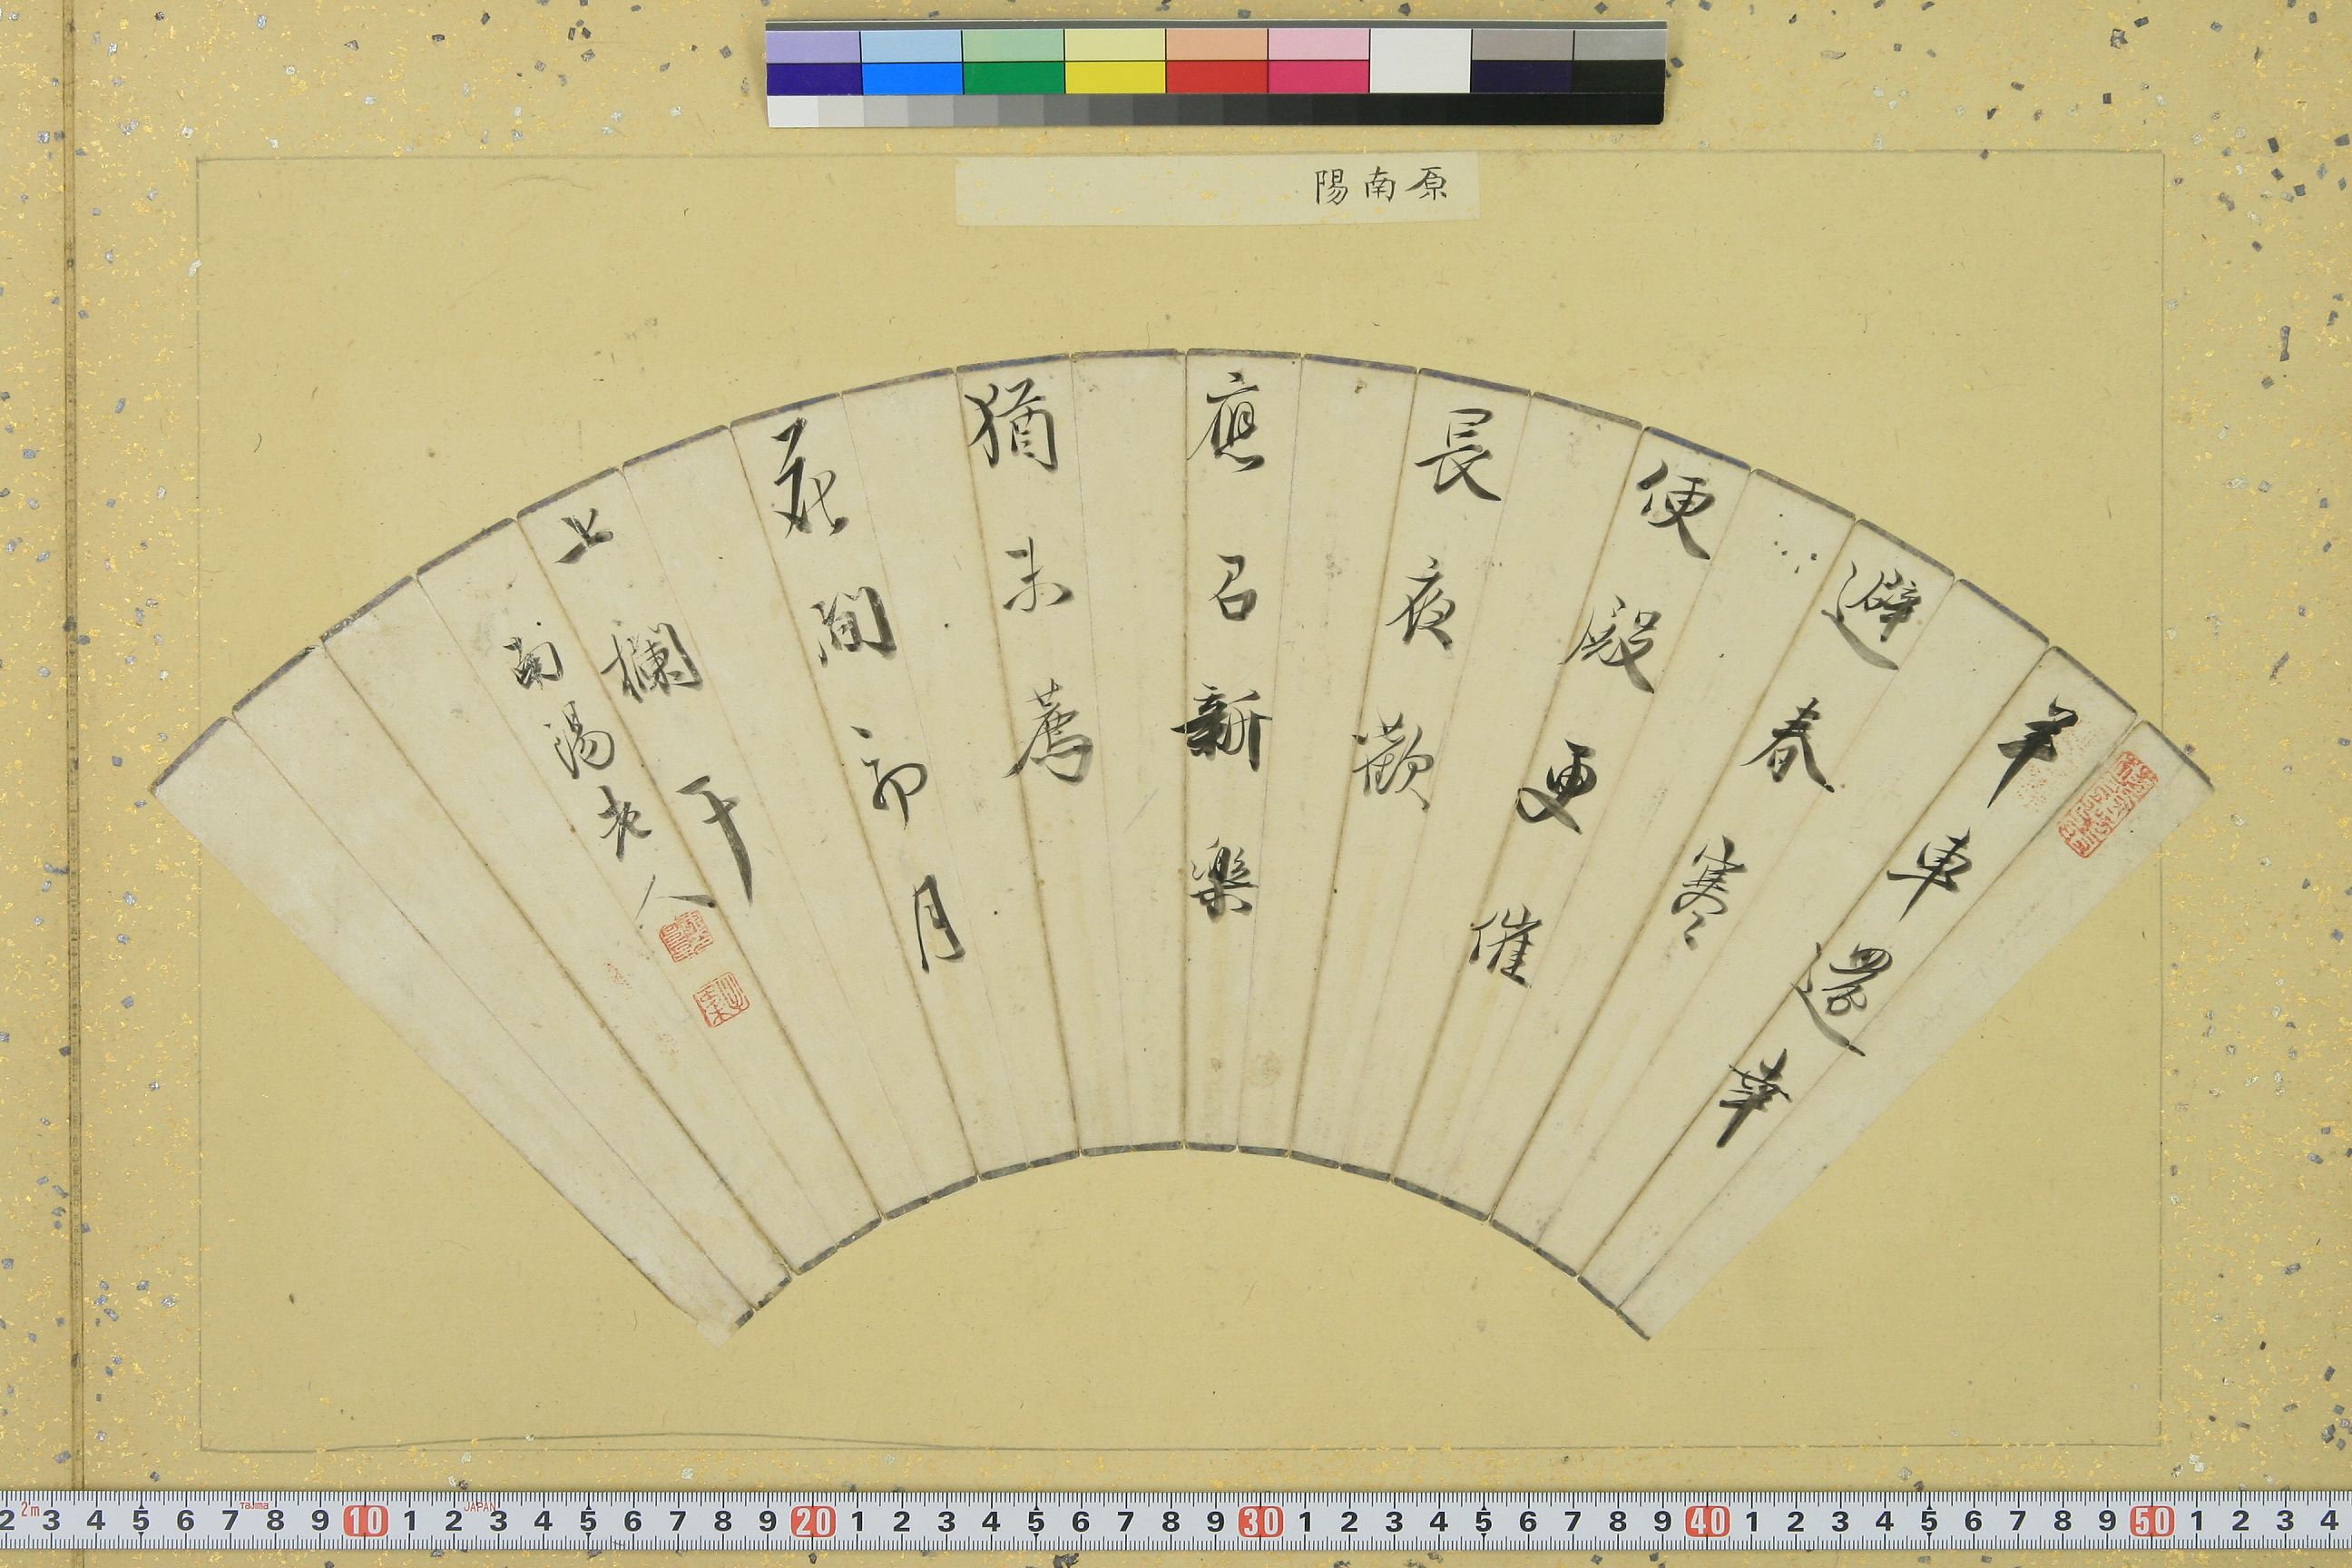 原南陽
羊車還幸
避春寒
便殿更催
長夜歡
應召新樂
猶未薦
花間初月
上欄干
南陽老人
2 3 4 5 6 7 8 9 10 1 2 3 4 5 6 7 8 9 20 1 2 3 4 5 6 7 8 9 30 1 2 3 4 5 6 7 8 9 40 1 2 3 4 5 6 7 8 9 50 1 2 3 4
2m Tajima JAPAN